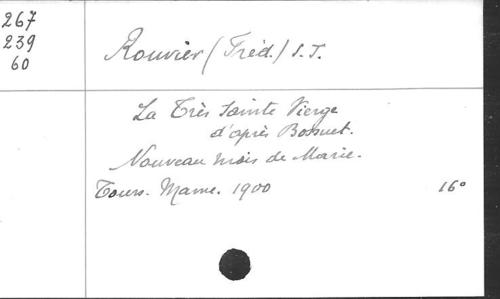 267
239
60
Rouvier (Fréd.) S.J.
La Très Sainte Vierge
d'après Bossuet.
Nouveau mois de Marie.
Tours. Mame. 1900 16°